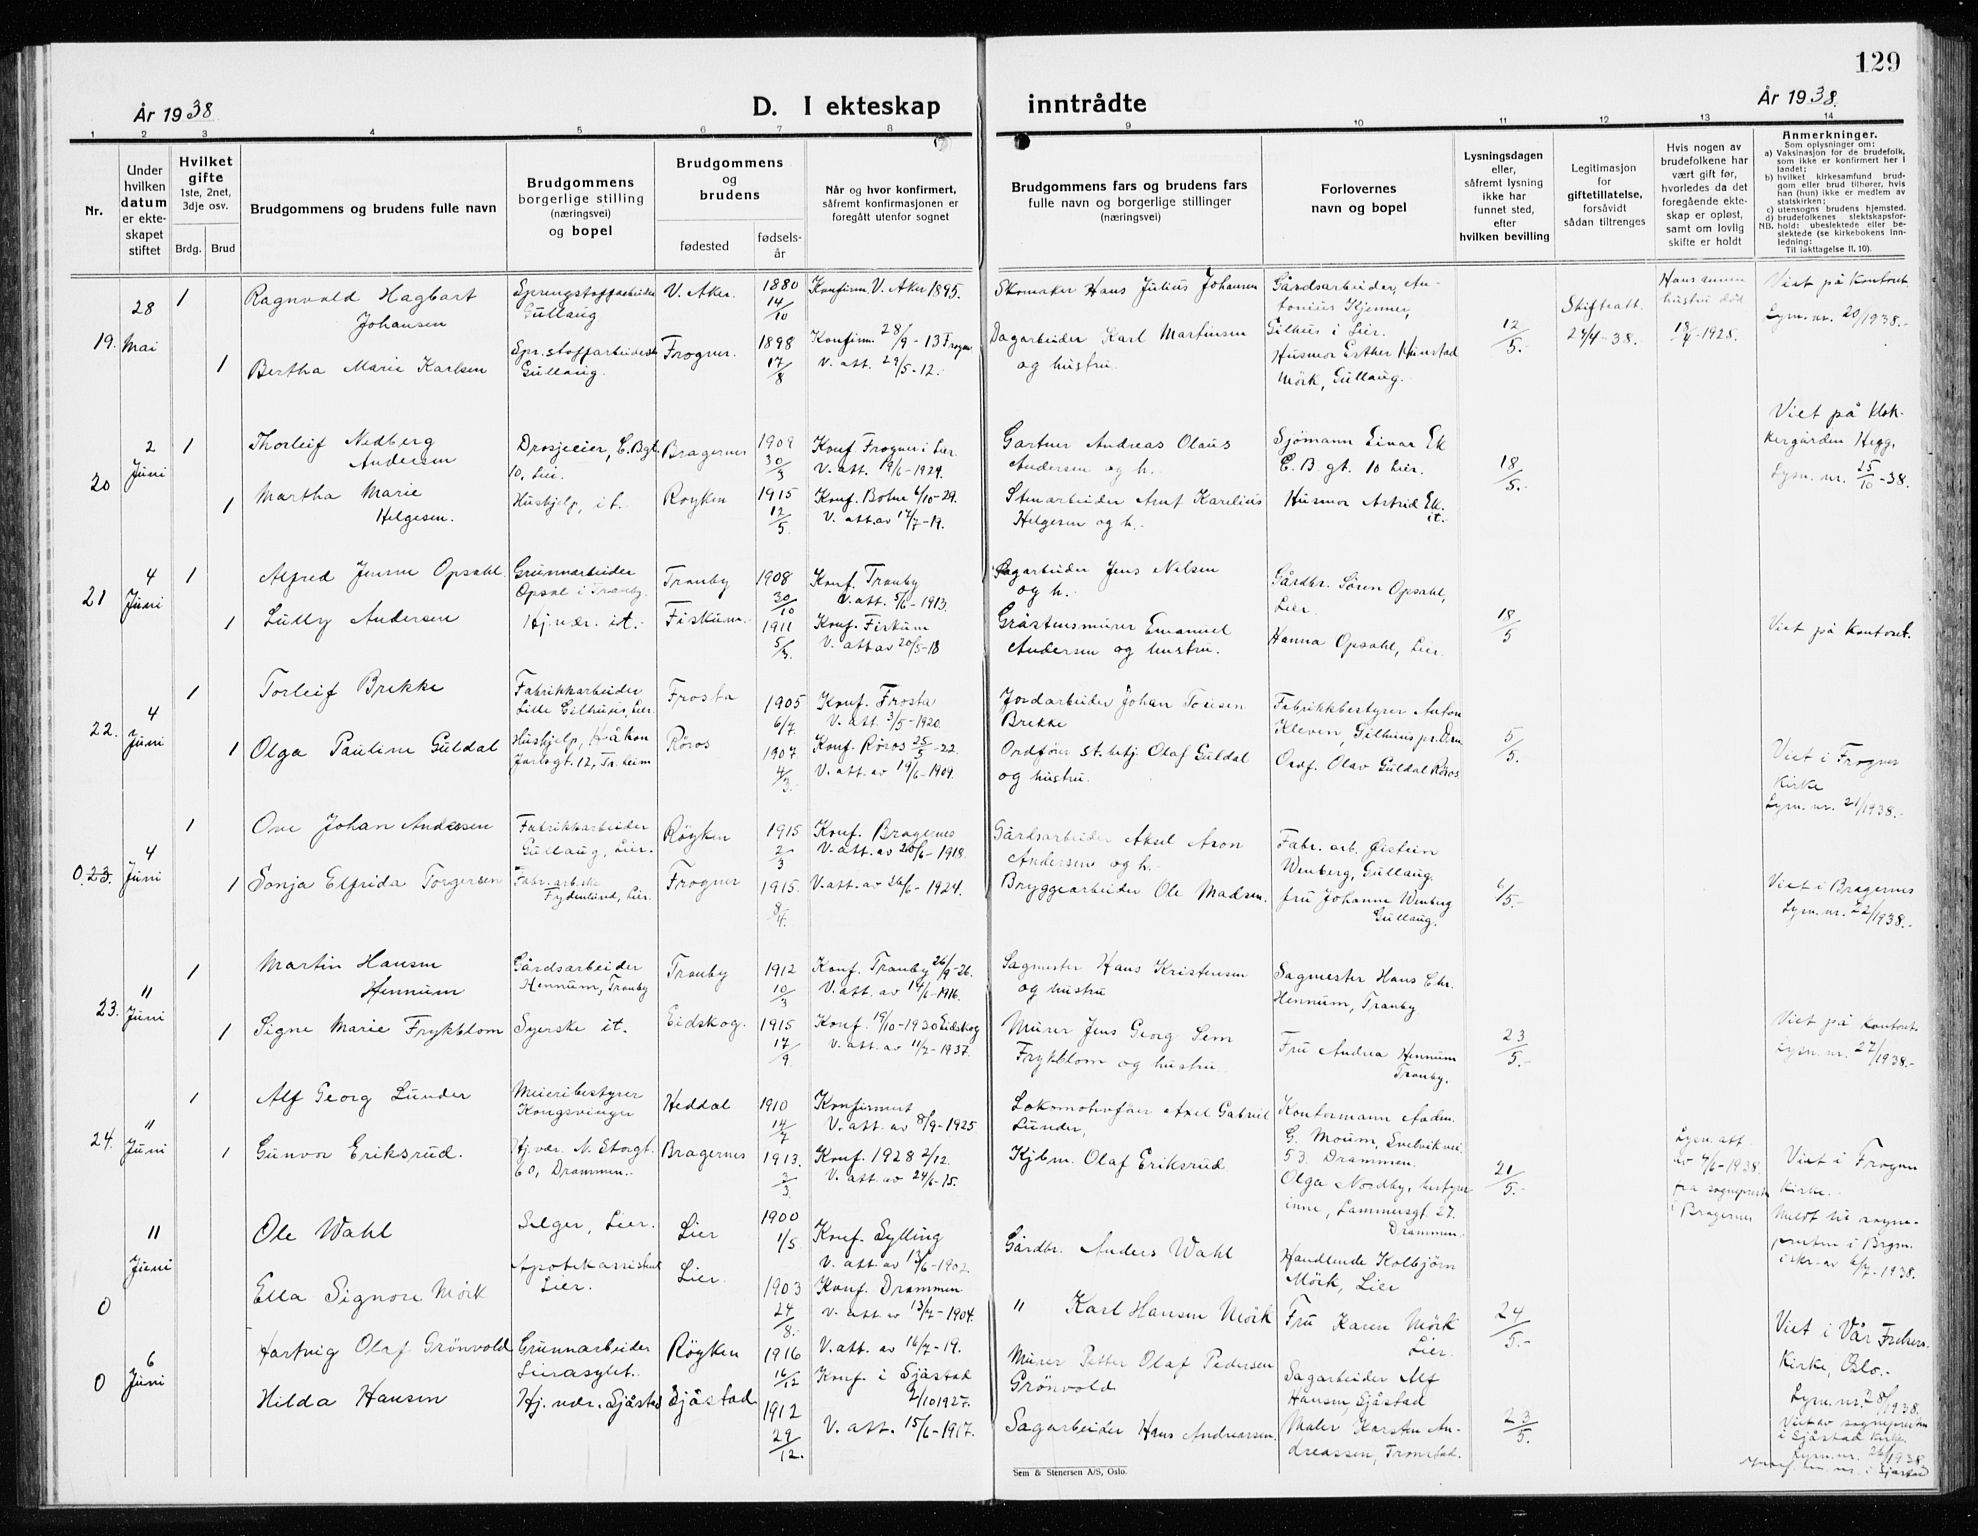 129
År 1938
D. I ekteskap
inntrådte
År 1938.
1 2 3 4 5 6 7 8 9 10 11 12 13 14
Nr.
Under
hvilken
datum
er ekte-
skapet
stiftet
Hvilket
gifte
1ste, 2net,
3dje osv.
Brdg. Brud
Brudgommens og brudens fulle navn
Brudgommens
borgerlige stilling
(næringsvei)
og bopel
Brudgommens
og
brudens
fødested
fødsels-
år
Når og hvor konfirmert,
såfremt konfirmasjonen er
foregått utenfor sognet
Brudgommens fars og brudens fars
fulle navn og borgerlige stillinger
(næringsvei)
Forlovernes
navn og bopel
Lysningsdagen
eller,
såfremt lysning
ikke har
funnet sted,
efter
hvilken bevilling
Legitimasjon
for
giftetillatelse,
forsåvidt
sådan tiltrenges
Hvis nogen av
brudefolkene har
vært gift før,
hvorledes da det
foregående ekte-
skap er opløst,
samt om lovlig
skifte er holdt
Anmerkninger.
Som oplysninger om:
a) Vaksinasjon for de brudefolk,
som ikke er konfirmert her i
landet;
b) hvilket kirkesamfund brud-
gom eller brud tilhører, hvis
han (hun) ikke er medlem av
statskirken;
c) utensogns brudens hjemsted.
d) brudefolkenes slektskapsfor-
hold: ubeslektede eller be-
slektede (se kirkebokens inn-
ledning:
NB. Til iakttagelse II, 10).
19. 28 Mai
1
Ragnvald Hagbart
Johansen
Sprengstoffarbeider
Gullaug
V. Aker.
1880
14/10
Konfirm. V. Aker 1895.
Skomaker Hans Julius Johansen
Gårdsarbeider, An-
tonius Kjenner,
Gilhus i Lier.
12/5.
Skifteatt.
27/4-38.
Hans annen
hustru död
18/4-1928.
Viet på Kontoret
Lysn. nr. 20/1938.-
1
Bertha Marie Karlsen
Spr.stoffarbeiderske
Gullaug.
Frogner.
1898
17/8
Konfirm. 28/9-13 Frogner
V. att. 29/5-12.
Dagarbeider Karl Martinsen
og hustru.
Husmor Esther Hunstad
Mörk, Gullaug.
20 2 Juni
1
Thorleif Nedberg
Andersen
Drosjeeier, E. Bgt.
10, Lier.
Bragernes
1909
30/3
Konf Frogner i Lier
V. att. 19/6-1924.
Gartner Andreas Olaus
Andersen og h.
Sjömann Einar Ek
E. B. gt. 10 Lier.
18/5.
Viet på Klok-
kergården Hegg.
Lysn. nr. 25/10-38.
1
Martha Marie
Helgesen.
Hushjelp, it.
Royken
1915
12/5
V. att. av 17/7-19.
Stenarbeider Arnt Karelius
Helgesen og h.
Husmor Astrid Ek.
it.
21 4 Juni
1
Alfred Jensen Opsahl
Grunnarbeider
Opsal i Tranby.
Tranby
1908
30/10
Konf. Tranby
V. att. 5/6-1913.
Sagarbeider Jens Nelsen
og h.
Gårdbr. Sören Opsahl,
Lier.
18/5
Viet på Kontoret.
1
Lully Andersen
Hj.vær. it.
Fiskum.
1911
5/3.
Konf. Fiskum
V. att av 20/5-18
Gråstensmurer Emanuel
Andersen og hustru.
Hanna Opsahl, Lier.
22. 4 Juni
1
Torleif Brekke
Fabrikkarbeider
Lille Gilhus, Lier.
Frosta
1905
6/7.
Konf. Frosta
V. att. 3/5-1920.
Jordarbeider Johan Toresen
Brekke
Fabrikkbestyrer Anton
Kleven, Gilhus pr. Drm.
5/5.
Viet i Frogner
Kirke
Lysn. nr. 21/1938.-
1
Olga Pauline Guldal
Hushjelp, Håkon
Jarlsgt. 12, Tr. heim
Röros
1907
4/3.
Konf. Röros 25/5-22.
V. att. av 19/6-1909.
Ordförer st. betj. Olaf Guldal
og hustru.
Ordf. Olav Guldal Röros
0.23. 4 Juni
1
Ove Johan Andersen
Fabrikkarbeider
Gullaug, Lier.
Röyken
1915
2/3
Konf. Bragernes
V. att. av 20/6-1918.
Gårdsarbeider Aksel Aron
Andersen og h.
Fabr. arb. Eistein
Wenberg, Gullaug.
6/5.-
Viet i Bragernes
Lysn. nr. 22/1938.-
1
Sonja Elfrida Torgersen
Fabr. arb.ske
Fydenlund, Lier.
Frogner
1915.
8/4.
V. att. av 26/6-1924.
Bryggearbeider Ole Madsen.
fru Johanne Wenberg
Gullaug.
23. 11 Juni
1
Martin Hansen
Hennum
Gårdsarbeider
Hennum, Tranby
Tranby
1912
10/3
Konf. Tranby 26/9-26.
V. att. av 14/6-1916.
Sagmester Hans Kristensen
og hustru
Sagmester Hans Chr.
Hennum, Tranby
23/5.-
Viet på kontoret
Lysn. nr. 27/1938.-
1
Signe Marie Frykblom
Syerske it.
Eidskog.
1915
17/9
Konf. 19/10-1930 Eidskog
V. att. av 11/7-1937.
Murer Jens Georg Sem
Frykblom og hustru
Fru Andrea Hennum
Tranby.
24. 11 Juni
1
Alf Georg Lunder
Meieribestyrer
Kongsvinger
Heddal
1910
14/7
Konfirmert
V. att. av 8/9-1925
Lokomotivförer Axel Gabriel
Lunder,
Kontormann Aaden
G. Moum, Svelvikvei.
53. Drammen.
21/5.-
Lysn. att.
av 7/6-1938.
fra sogneprest
i Bragernes
Viet i Frogner
kirke.
Meldt til sogne-
presten i Brgn.
i skr. av 6/7-1938.
1
Gunvor Eriksrud.
Hj. vær. N. Storgt.
60, Drammen.
Bragernes
1913.
2/3.
Konf. 1928 2/12.
V. att. av 24/6-15.
Kjbm. Olaf Eriksrud
Olga Nordby, bestyrer-
inne, Lammersgt. 27.
Drammen.
0 11 Juni
Ole Wahl
Selger, Lier.
Lier
1900
1/5
Konf. Sylling
V. att. av 13/6-1902.
Gårdbr. Anders Wahl
Handlende Kolbjörn
Mörk, Lier
24/5.-
Viet i Vår Frelsers
Kirke, Oslo.-
Lysn. nr. 28/1938.
Ella Signore Mörk
Lier.
Lier.
1903
24/8.
Konf. Drammen
V. att. av 13/7-1904.
" Karl Hansen Mörk
Fru Karen Mörk
Lier.
0 6 Juni
Hartvig Olaf Grönvold
Grunnarbeider
Lierasylet.
Röyken
1916
16/12
V. att. av 16/7-19.
Murer Petter Olaf Pedersen
Grönvold
Sagarbeider Alf
Hansen, Sjåstad
23/5.
Viet av sognepresten
i Sjåstad Kirke
Lysn. nr. 26/1938.
Hilda Hansen
Hj. vær. Sjåstad
Sjåstad
1912
29/12.
Konf. i Sjåstad
2/10 1927.
V. att. 15/6-1917.
Sagarbeider Hans Andreassen.
Maler Karsten An-
dreassen, Tronstad.
Sem & Stenersen A/S, Oslo.